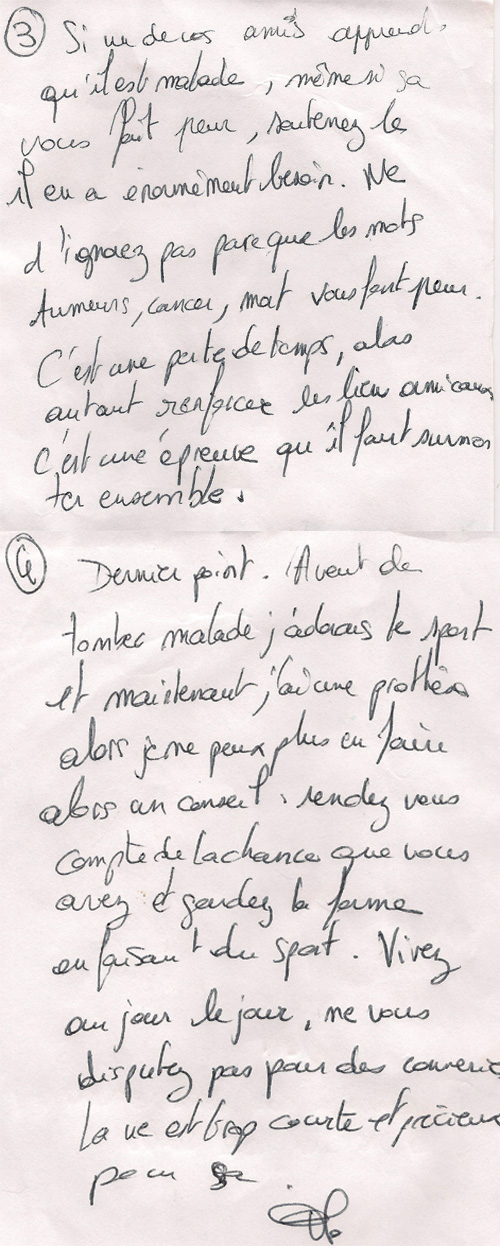 ③ Si un de vos amis apprend
qu'il est malade, même si ça
vous fait peur, soutenez le
il en a énormément besoin. Ne
l'ignorez pas parceque les mots
tumeurs, cancer, mort vous font peur.
C'est une perte de temps, alors
autant renforcer les lien amicaux
C'est une épreuve qu'il faut surmon
ter ensemble.
④ Dernier point. Avant de
tomber malade j'adorais le sport
et maintenant j'ai une prothèse
alors je ne peux plus en faire
alors un conseil. rendez vous
compte de la chance que vous
avez et gardez la forme
en faisant du sport. Vivez
au jour le jour, ne vous
disputez pas pour des conneries
la vie est trop courte et précieuse
pour ça